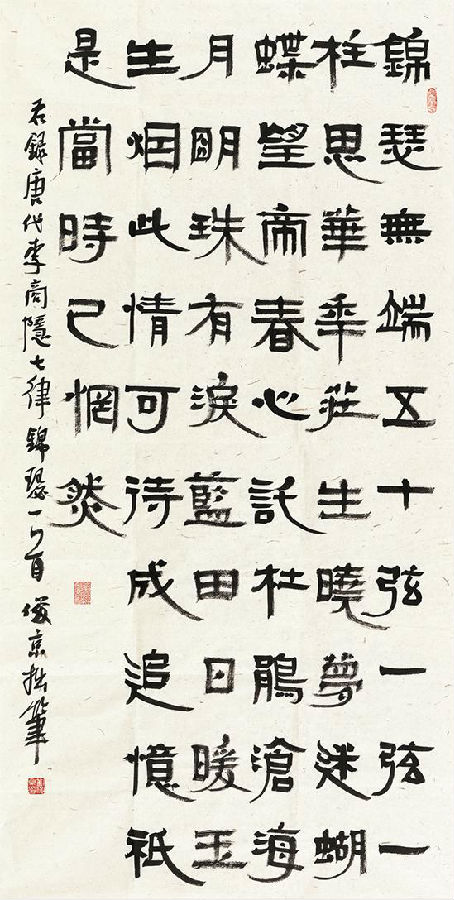 錦瑟無端五十弦一弦一
柱思華年莊生曉夢迷蝴
蝶望帝春心託杜鵑滄海
月明珠有淚藍田日暖玉
生烟此情可待成追憶祇
是當時已惘然
右錄唐代李商隱七律錦瑟一首俊京拙筆